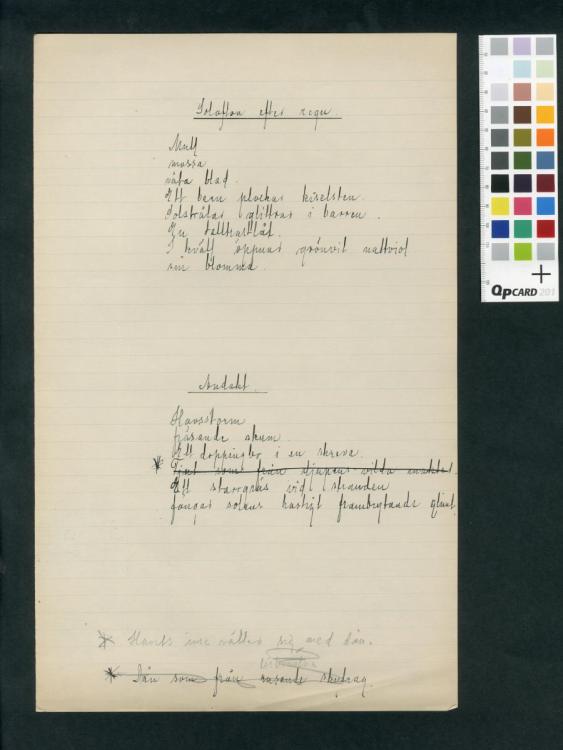 Solafton efter regn.
Mull
mossa
våta blad.
Ett barn plockar kiselsten.
Solstrålar glittrar i barren.
En talltrastlåt.
I kväll öppnar grönvit nattviol
sin blomma.
Andakt.
Havsstorm
fräsande skum.
Ett doppingbo i en skreva.
* som från djupens vilda
Ett starrgräs vid stranden
fångar solens hastigt frambrytande glimt.
* Havets inre välter sig med dån.
* Dån som från rusande skydrag.
QPCARD 201